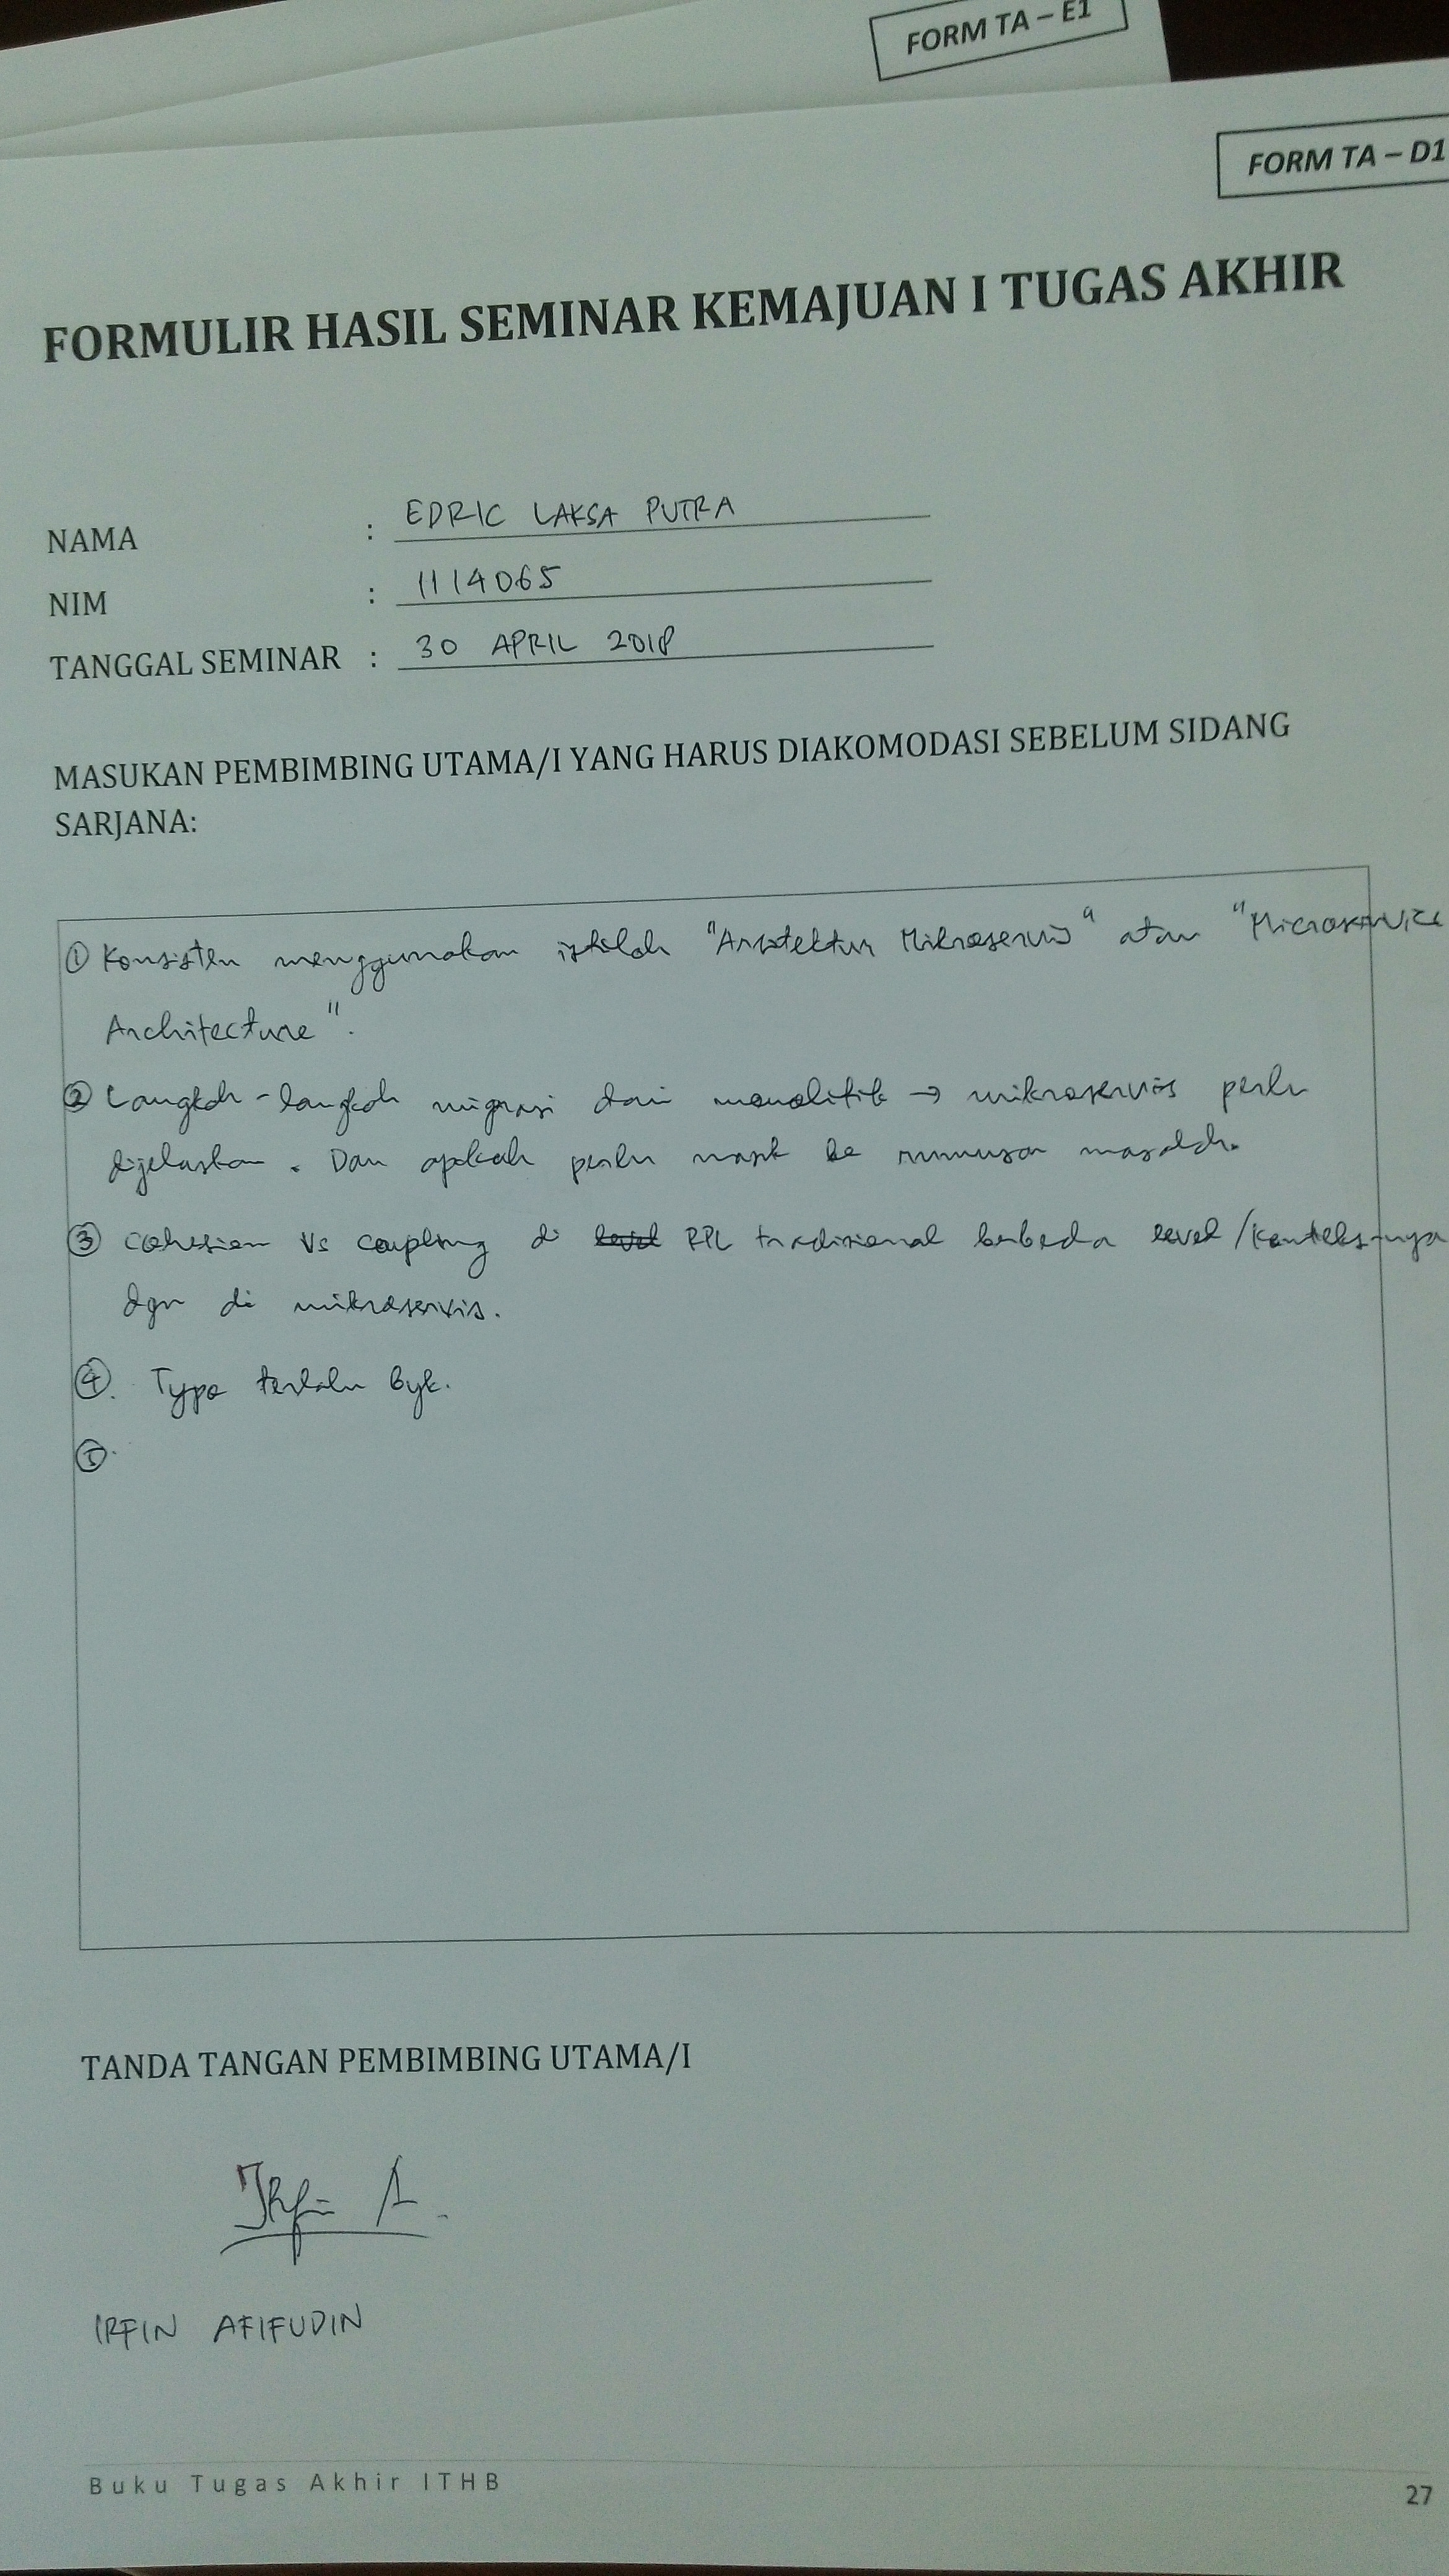 FORM TA – E1
FORM TA – D1
FORMULIR HASIL SEMINAR KEMAJUAN I TUGAS AKHIR
NAMA : EDRIC LAKSA PUTRA
NIM : 1114065
TANGGAL SEMINAR : 30 APRIL 2018
MASUKAN PEMBIMBING UTAMA/I YANG HARUS DIAKOMODASI SEBELUM SIDANG
SARJANA:
① Konsisten menggunakan istilah "Arsitektur Mikroservis" atau "Microservice
Architecture".
② Langkah-langkah migrasi dari monolitik → mikroservis perlu
dijelaskan. Dan apakah perlu masuk ke rumusan masalah.
③ cohesion vs coupling di level RPL tradisional berbeda level/konteks-nya
dgn di mikroservis.
④. Typo terlalu byk.
⑤.
TANDA TANGAN PEMBIMBING UTAMA/I
Irfin A.
IRFIN AFIFUDIN
Buku Tugas Akhir ITHB
27